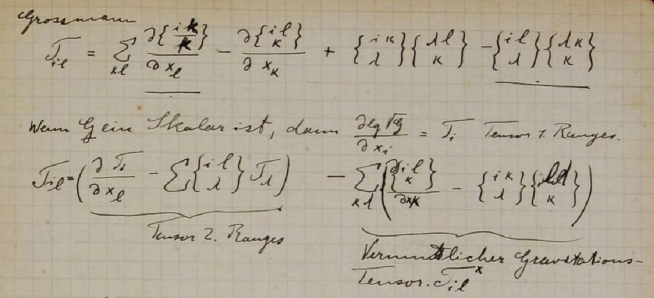 Grossmann
T_{il} = \sum_{κl} \frac{∂\{{iκ \atop κ}\}}{∂x_l} - \frac{∂\{{il \atop κ}\}}{∂x_κ} + \{{iκ \atop λ}\}\{{λl \atop κ}\} - \{{il \atop λ}\}\{{λκ \atop κ}\}
Wenn G ein Skalar ist, dann \frac{∂lg\sqrt{G}}{∂x_i} = T_i Tensor 1. Ranges.
T_{il} = (\frac{∂T_i}{∂x_l} - \sum \{{il \atop λ}\} T_λ) - \sum_{κλ} (\frac{∂\{{il \atop κ}\}}{∂x_κ} - \{{iκ \atop λ}\}\{{λl \atop κ}\})
Tensor 2. Ranges
Vermutlicher Gravitations-
Tensor. T_{il}^x